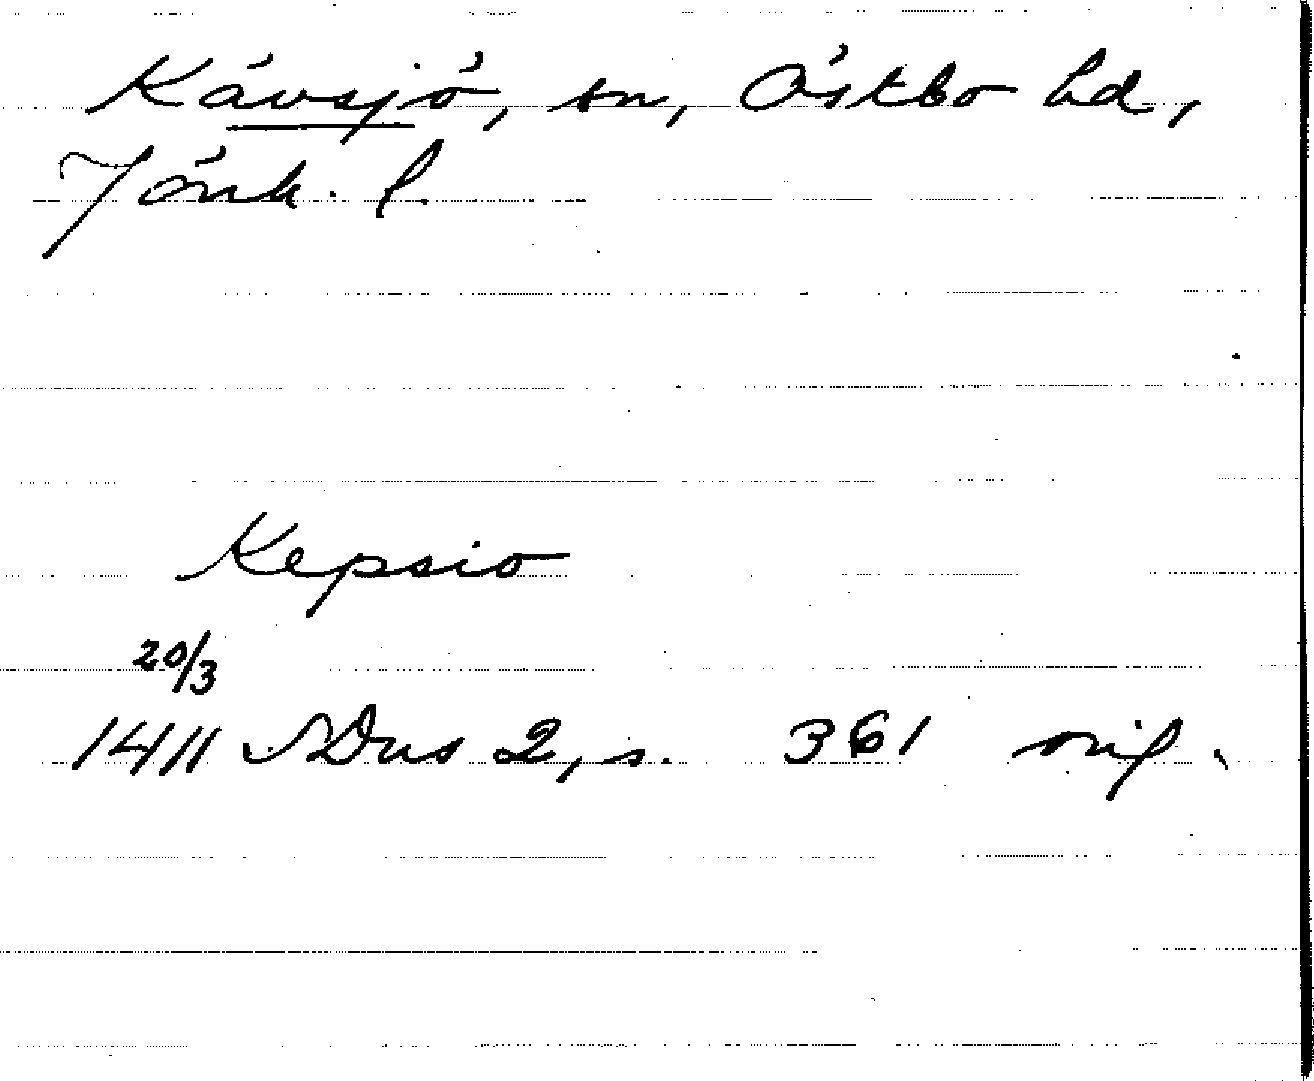 Kävsjö, sn, Östbo hd,
Jönk. l.
Kepsio
20/3
1411 SDns 2, s. 361 orig.